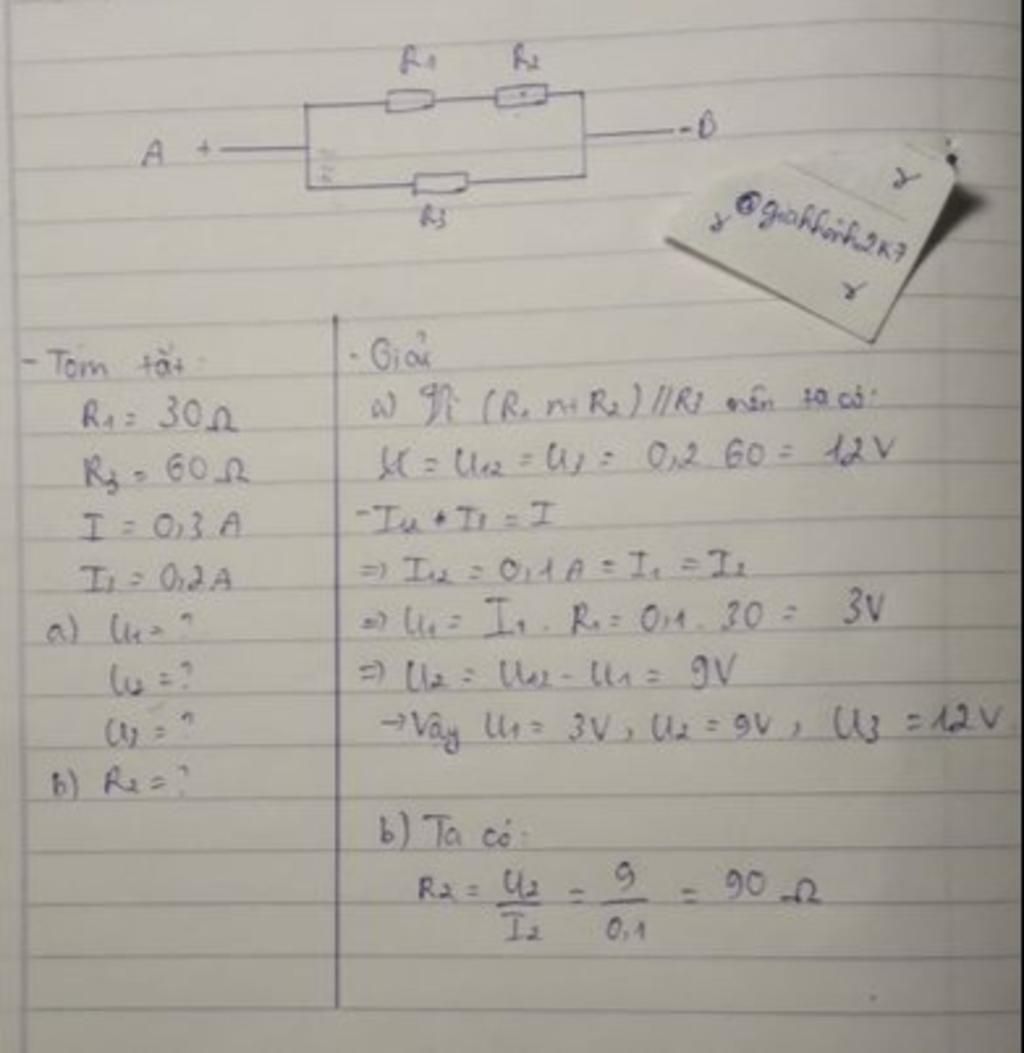 R1 R2
A + - B
R3
@giakhánh2k7
- Tóm tắt:
R1 = 30 Ω
R3 = 60 Ω
I = 0,3 A
I3 = 0,2 A
a) U1 = ?
U2 = ?
U3 = ?
b) R2 = ?
- Giải
a) Vì (R1 nt R2) // R3 nên ta có:
U = U12 = U3 = 0,2 . 60 = 12 V
- I12 + I3 = I
=> I12 = 0,1 A = I1 = I2
=> U1 = I1 . R1 = 0,1 . 30 = 3V
=> U2 = U12 - U1 = 9V
→ Vậy U1 = 3V, U2 = 9V, U3 = 12 V
b) Ta có:
R2 = U2 / I2 = 9 / 0,1 = 90 Ω